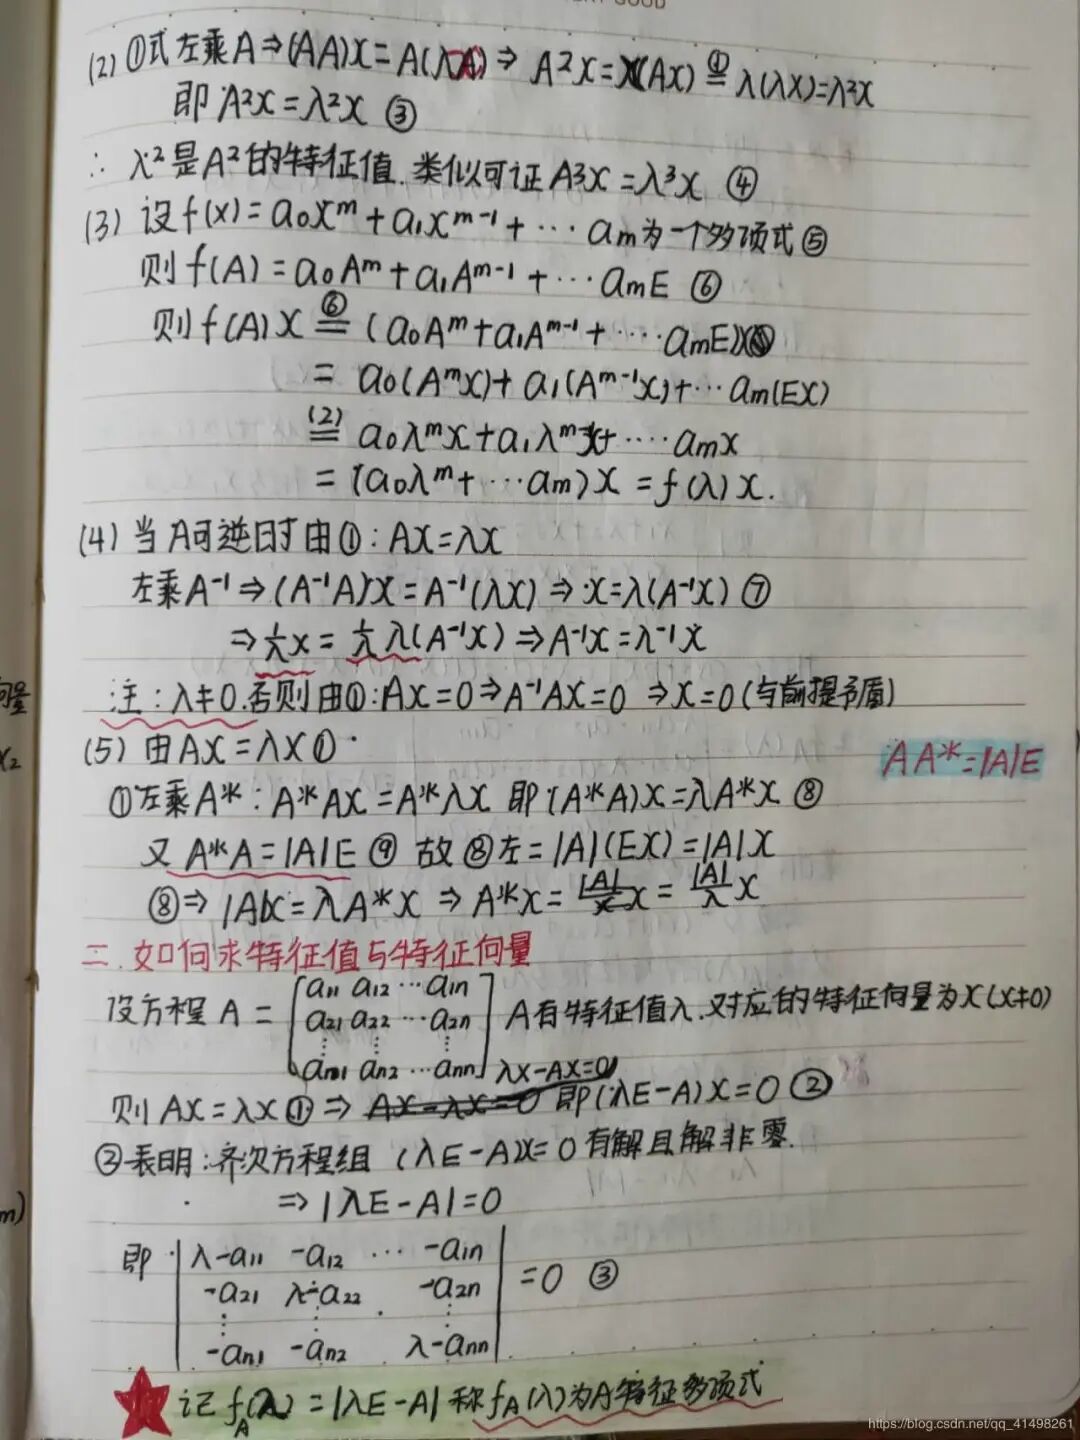 (2) ①式左乘A⇒(AA)X=A(λX)⇒ A²X=λ(AX) ①= λ(λX)=λ²X
即 A²X=λ²X ③
∴ λ²是A²的特征值. 类似可证A³X=λ³X ④
(3) 设f(x)=a₀xᵐ+a₁xᵐ⁻¹+⋯aₘ为一个多项式⑤
则f(A)=a₀Aᵐ+a₁Aᵐ⁻¹+⋯aₘE ⑥
则f(A)X ⑥= (a₀Aᵐ+a₁Aᵐ⁻¹+⋯⋯aₘE)X
= a₀(AᵐX)+a₁(Aᵐ⁻¹X)+⋯aₘ(EX)
(2)= a₀λᵐX+a₁λᵐ⁻¹X+⋯⋯aₘX
=(a₀λᵐ+⋯aₘ)X=f(λ)X.
(4) 当A可逆时由①:AX=λX
左乘A⁻¹⇒(A⁻¹A)X=A⁻¹(λX)⇒X=λ(A⁻¹X) ⑦
⇒1/λ X=1/λ λ(A⁻¹X)⇒A⁻¹X=λ⁻¹X
注:λ≠0.否则由①:AX=0⇒A⁻¹AX=0 ⇒X=0(与前提矛盾)
(5) 由AX=λX①
AA*=|A|E
①左乘A*:A*AX=A*λX 即(A*A)X=λA*X ⑧
又A*A=|A|E ⑨ 故⑧左=|A|(EX)=|A|X
⑧⇒|A|X=λA*X ⇒A*X=|A|/λ X=|A|/λ X
二.如何求特征值与特征向量
设方程A=[a₁₁ a₁₂ ⋯ a₁ₙ
a₂₁ a₂₂ ⋯ a₂ₙ A有特征值λ.对应的特征向量为X(X≠0)
⋮ ⋮ ⋮
aₙ₁ aₙ₂ ⋯ aₙₙ]
λX-AX=0
则AX=λX①⇒ AX-λX=0 即(λE-A)X=0②
②表明:齐次方程组(λE-A)X=0有解且解非零.
⇒|λE-A|=0
即|λ-a₁₁ -a₁₂ ⋯ -a₁ₙ|
|-a₂₁ λ-a₂₂ -a₂ₙ|=0 ③
⋮ ⋮ ⋮
|-aₙ₁ -aₙ₂ λ-aₙₙ|
记fA(λ)=|λE-A|称fA(λ)为A特征多项式
https://blog.csdn.net/qq_41498261